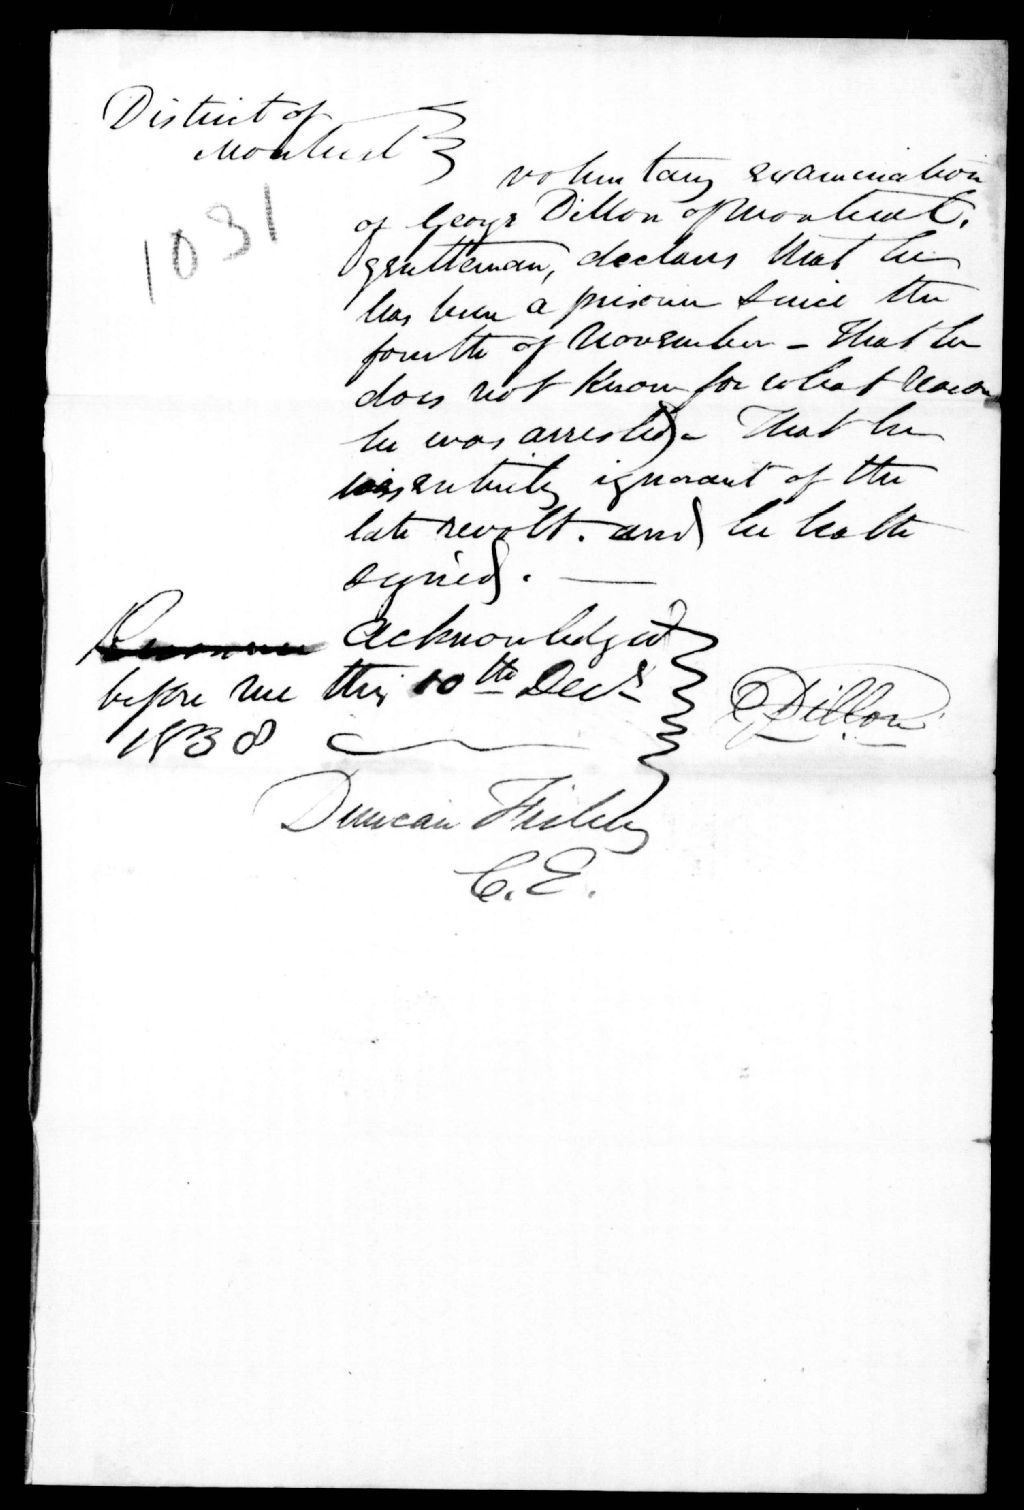 District of
Montreal
1031
voluntary examination
of George Dillon of Montreal.
gentleman, declares that he
has been a prisoner since the
fourth of November - That he
does not know for what reason
he was arrested - That he
is entirely ignorant of the
late revolt. and he hath
signed.
acknowledged
before me this 10th Decr
1838
Dillon
Duncan Fisher
C. E.